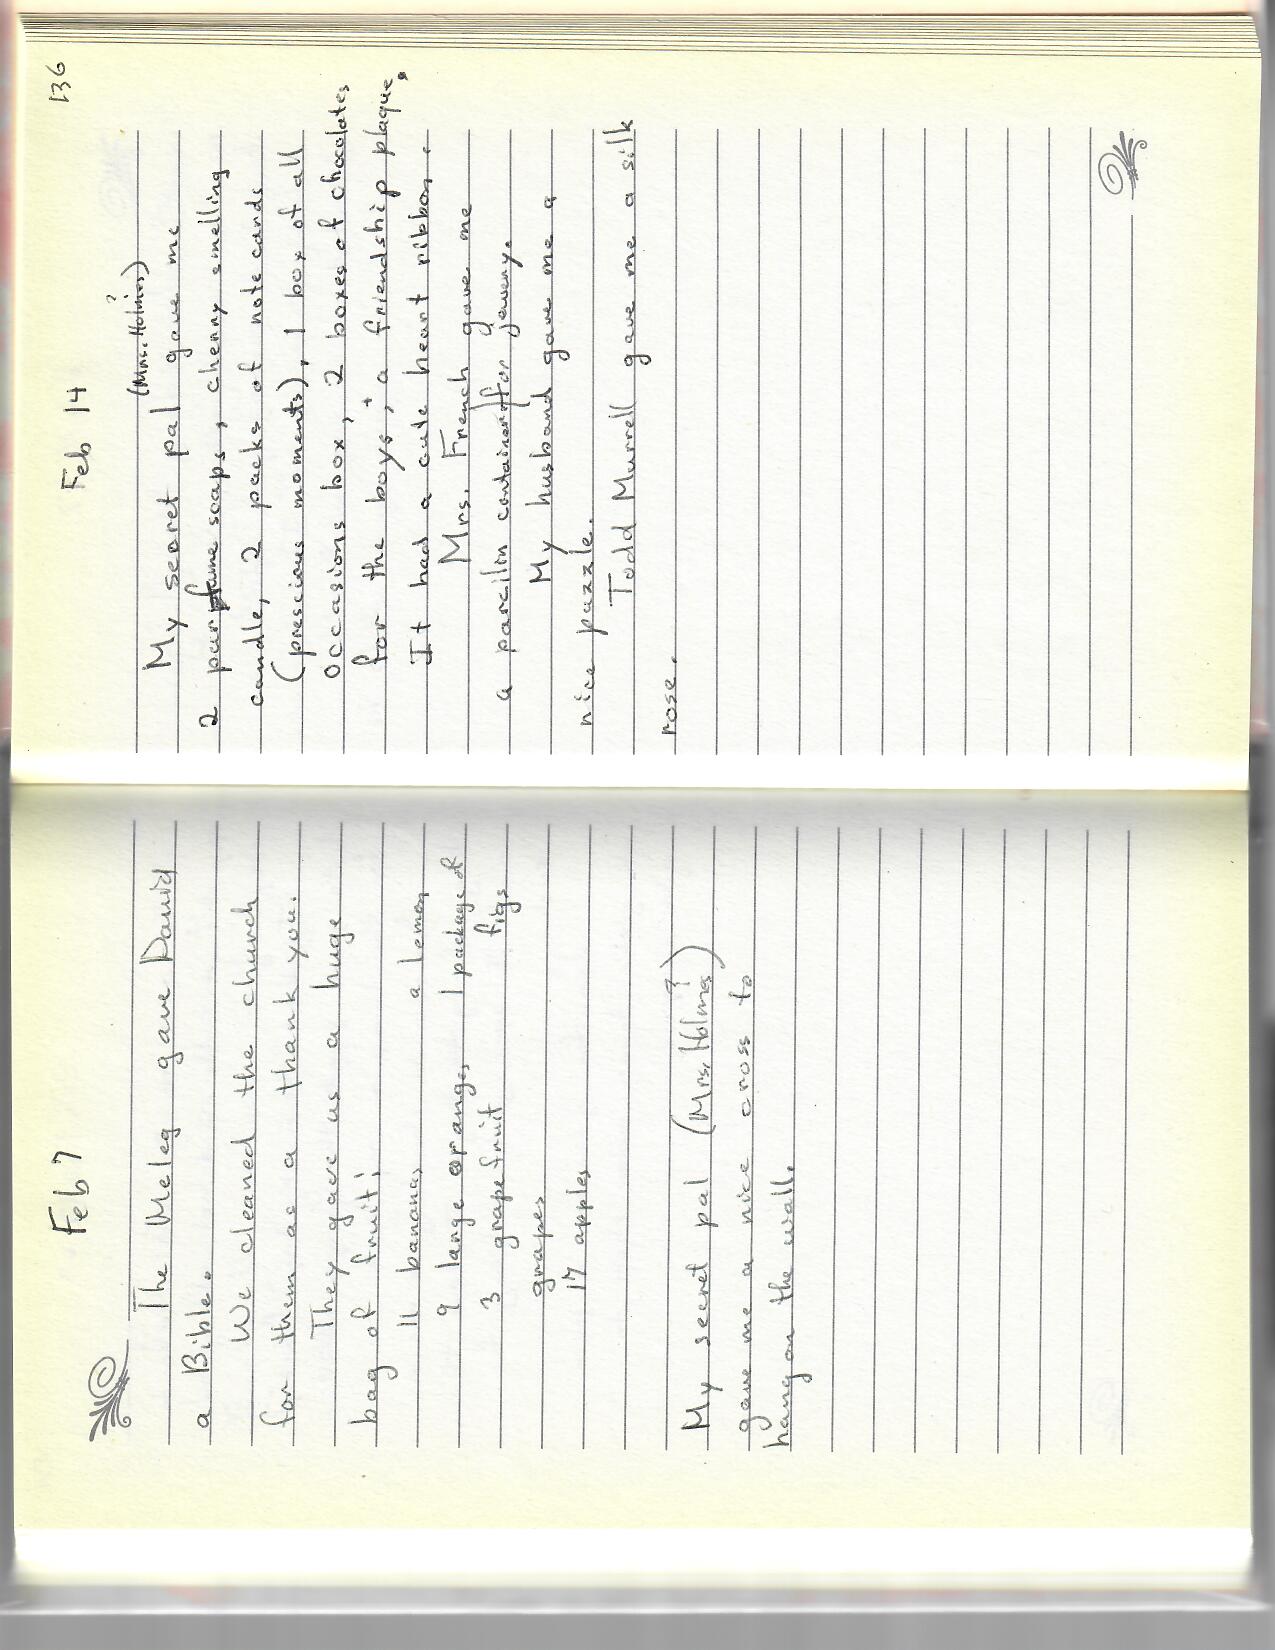 Feb 7
The Meleg gave David
a Bible.
We cleaned the church
for them as a thank you.
They gave us a huge
bag of fruit:
11 bananas a lemon
9 large oranges 1 package of
3 grapefruit figs
grapes
17 apples
My secret pal (Mrs. Holmes?)
gave me a nice cross to
hang on the wall.
136
Feb 14
(Mrs. Holmes?)
My secret pal gave me
2 parfume soaps, cherry smelling
candle, 2 packs of note cards
(prescious moments), 1 box of all
occasions box, 2 boxes of chocolates
for the boys, + a friendship plaque.
It had a cute heart ribbon.
Mrs. French gave me
a parcilin container for jewery.
My husband gave me a
nice puzzle.
Todd Murrell gave me a silk
rose.